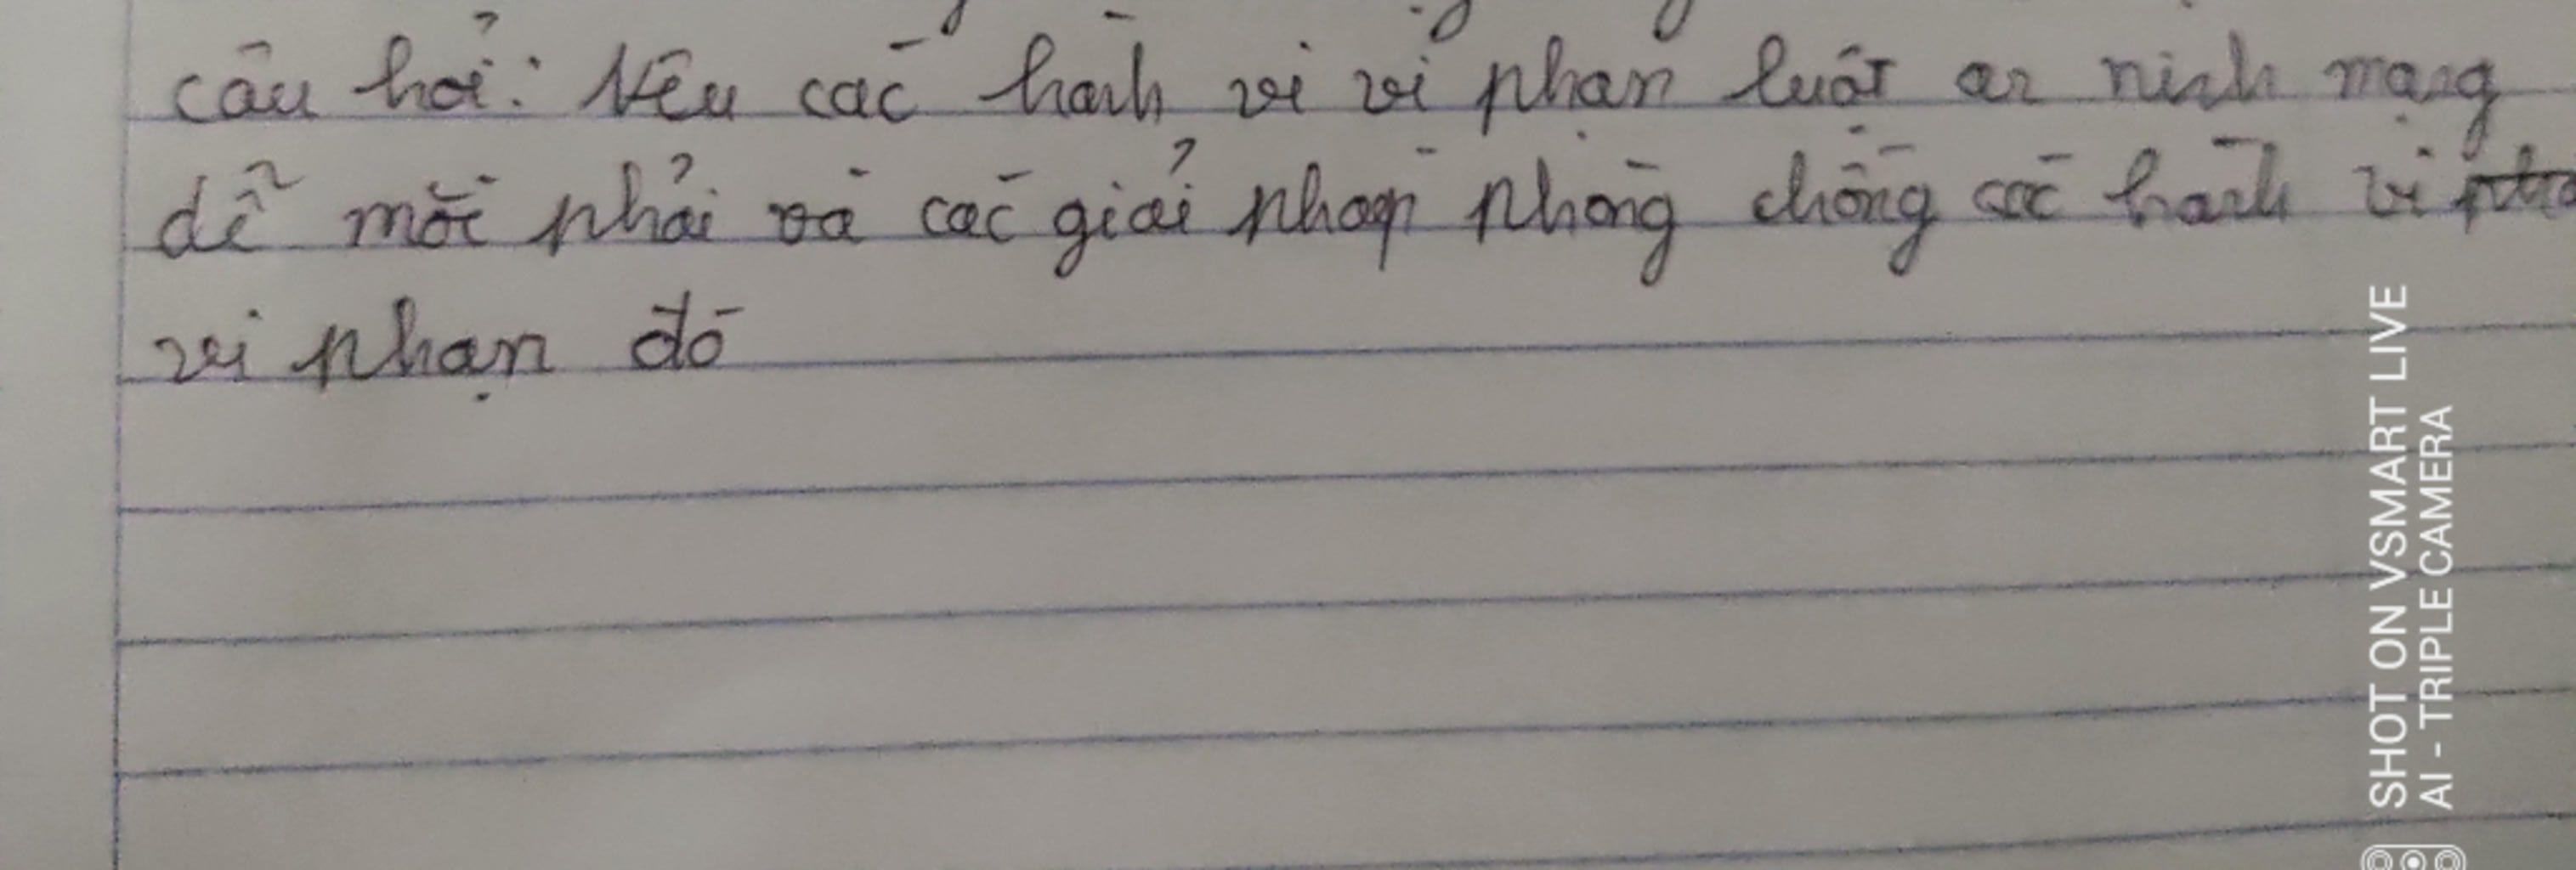 câu hỏi: Nêu các hành vi vi phạm luật an ninh mạng
dễ mắc phải và các giải pháp phòng chống các hành vi
vi phạm đó
SHOT ON VSMART LIVE
AI - TRIPLE CAMERA